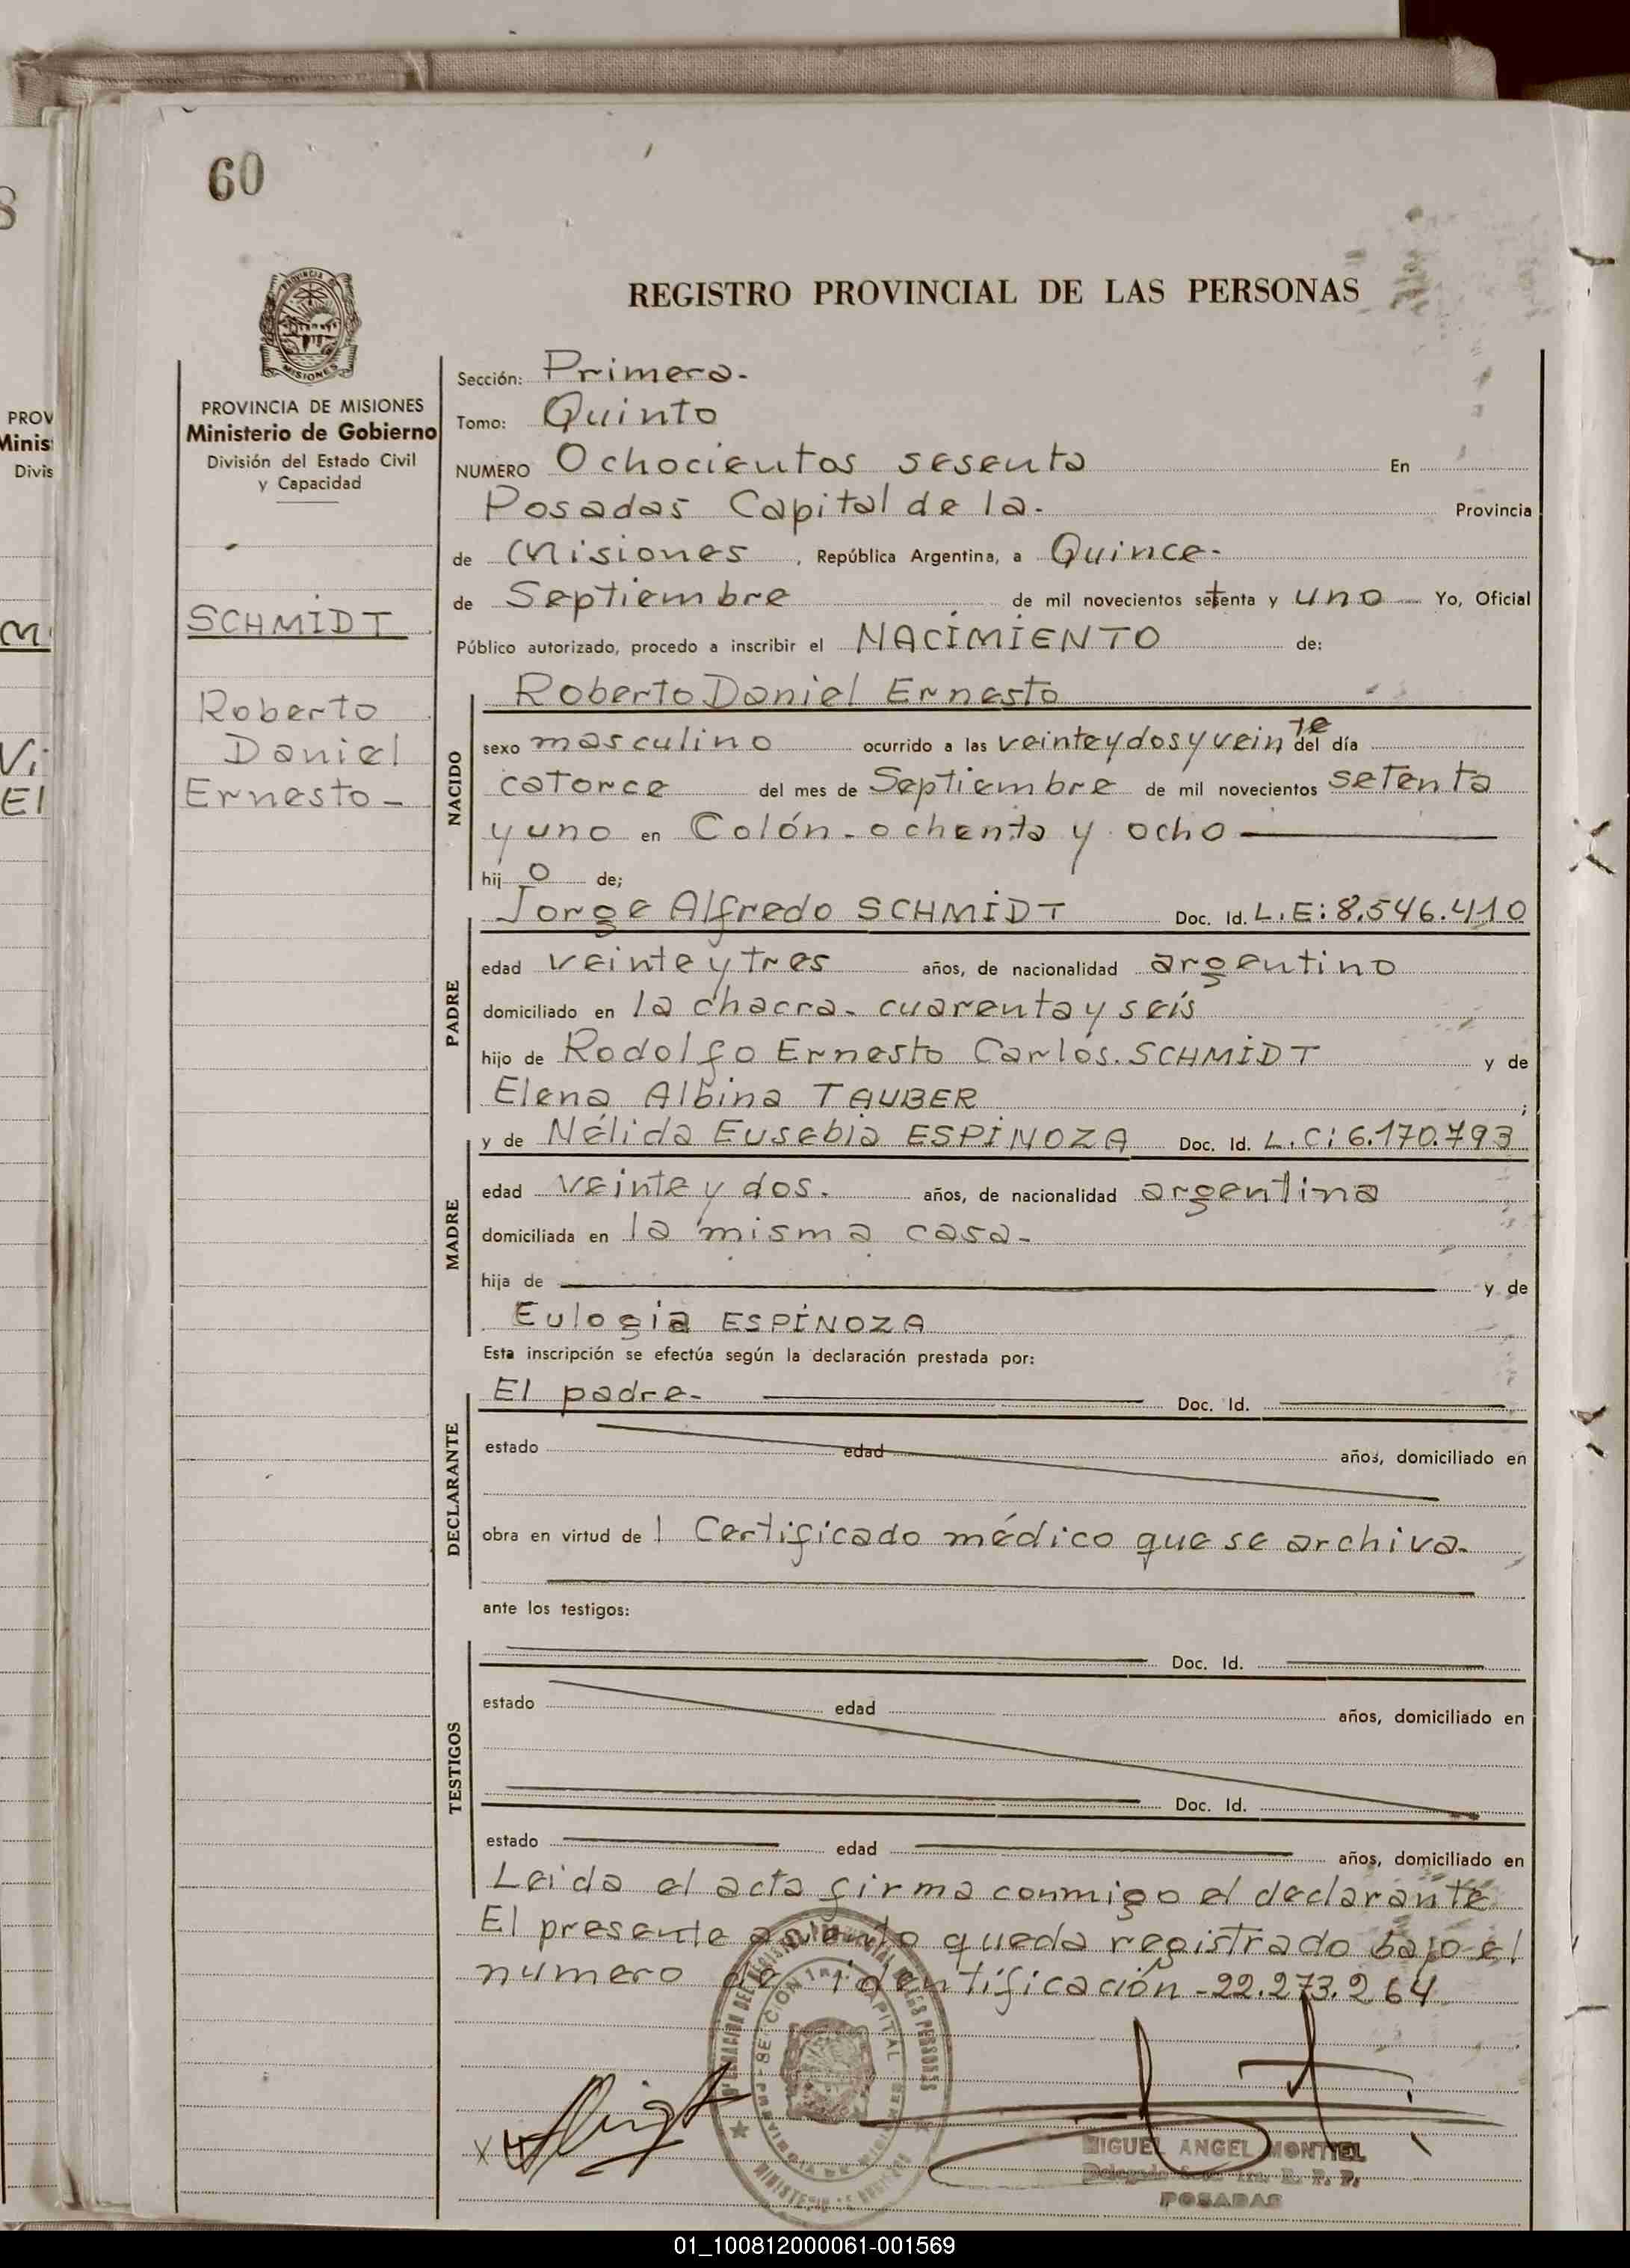 60
REGISTRO PROVINCIAL DE LAS PERSONAS
PROVINCIA DE MISIONES
Ministerio de Gobierno
División del Estado Civil
y Capacidad
SCHMIDT
Roberto
Daniel
Ernesto-
Sección: Primera-
Tomo: Quinto
NUMERO Ochocientos sesenta En
Posadas Capital de la- Provincia
de Misiones, República Argentina, a Quince-
de Septiembre de mil novecientos setenta y uno Yo, Oficial
Público autorizado, procedo a inscribir el NACIMIENTO de:
NACIDO
Roberto Daniel Ernesto
sexo masculino ocurrido a las veinte y dos y veinte del día
catorce del mes de Septiembre de mil novecientos setenta
y uno en Colón-ochenta y ocho
hij o de;
PADRE
Jorge Alfredo SCHMIDT Doc. Id. L.E: 8.546.410
edad veinte y tres años, de nacionalidad argentino
domiciliado en la chacra- cuarenta y seis
hijo de Rodolfo Ernesto Carlos SCHMIDT y de
Elena Albina TAUBER ;
MADRE
y de Nélida Eusebia ESPINOZA Doc. Id. L.C: 6.170.793
edad veinte y dos. años, de nacionalidad argentina
domiciliada en la misma casa-
hija de y de
Eulogia ESPINOZA
Esta inscripción se efectúa según la declaración prestada por:
DECLARANTE
El padre- Doc. Id.
estado edad años, domiciliado en
obra en virtud de l Certificado médico que se archiva-
ante los testigos:
TESTIGOS
Doc. Id.
estado edad años, domiciliado en
Doc. Id.
estado edad años, domiciliado en
Leida el acta firma conmigo el declarante
El presente asiento queda registrado bajo el
numero de identificación-22.273.264
MIGUEL ANGEL MONTIEL
POSADAS
PROV
Minis
Divis
01_100812000061-001569